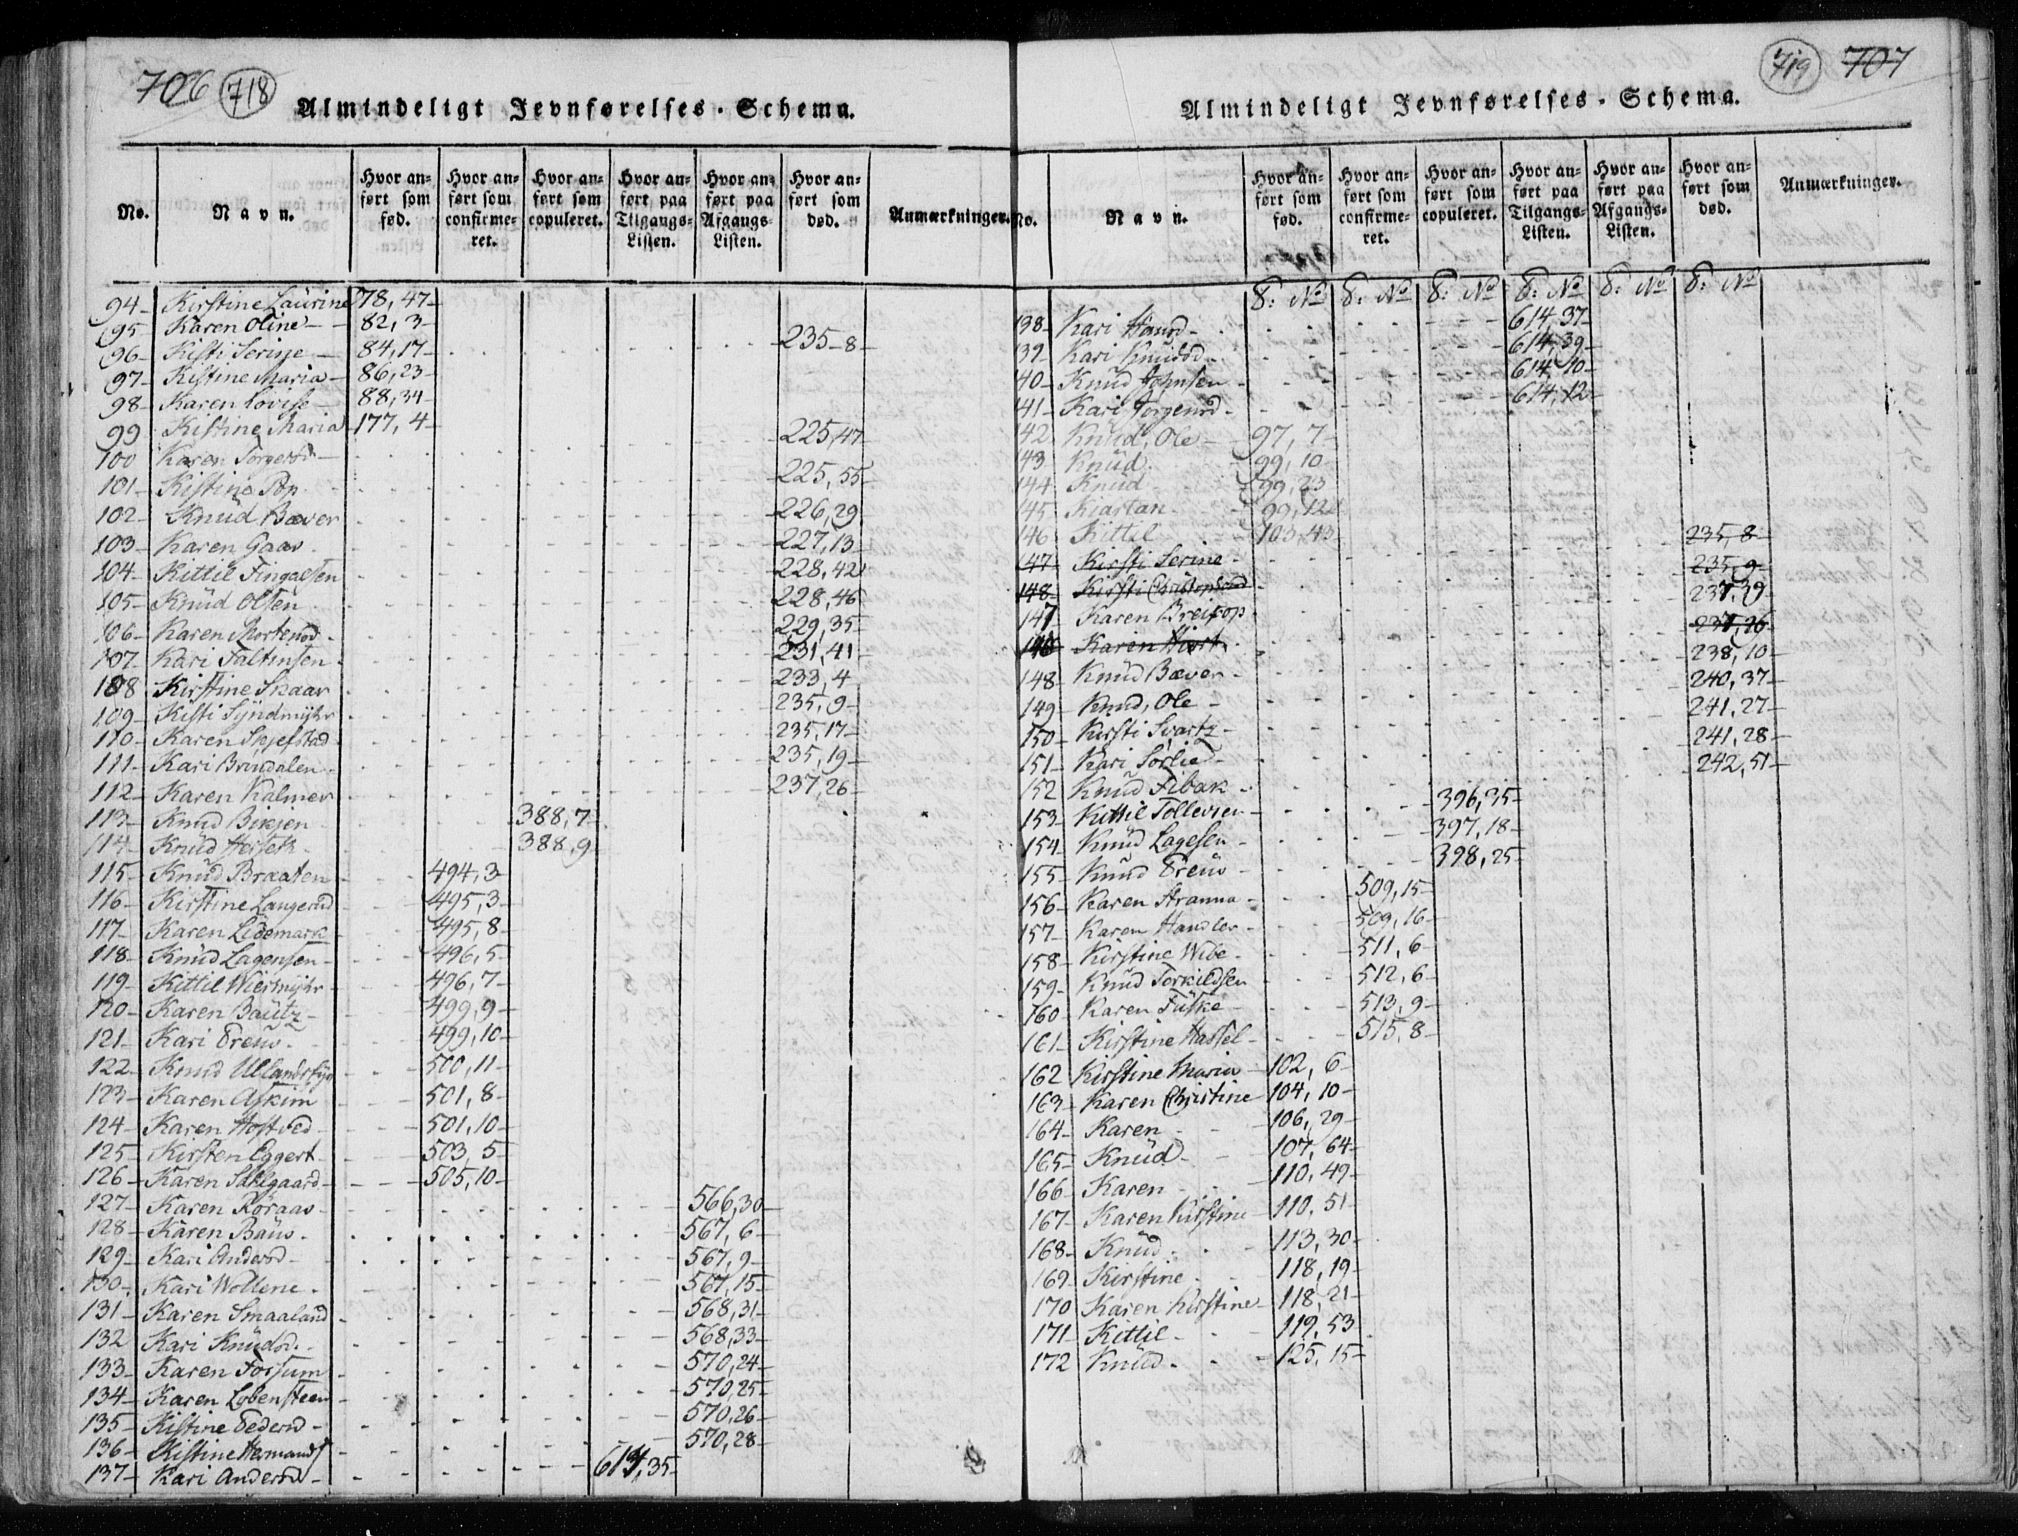 706 718
Almindeligt Jevnførelses-Schema.
No. Navn. Hvor anført som fød. Hvor anført som confirmeret. Hvor anført som copuleret. Hvor anført paa Tilgangs-Listen. Hvor anført paa Afgangs-Listen. Hvor anført som død. Anmærkninger.
94 Kirstine Laurine 78, 47
95 Karen Oline 82, 3
96 Kisti Serine 84, 17 235-8
97 Kistine Maria 86, 23
98 Karen Lovise 88, 34
99 Kistine Maria 177, 4
100 Karen Torgersd 225, 47
101 Kistine Pop 225, 55
102 Knud Bæver 226, 29
103 Karen Gaas 227, 13
104 Kittil Fingalsen 228, 42
105 Knud Olsen 228, 46
106 Karen Mortensd 229, 35
107 Kari Faltinsen 231, 41
108 Kirstine Skaar 233, 4
109 Kisti Syndmyhr 235, 9
110 Karen Skjefstad 235, 17
111 Kari Brudalen 235, 19
112 Karen Kalmer 237, 26
113 Knud 388, 7
114 Knud 388, 9
115 Knud Braaten 494, 3
116 Kirstine Langerud 495, 3
117 Karen Lidemark 495, 8
118 Knud Lagensen 496, 5
119 Kittil Wiermyhr 496, 7
120 Karen Bautz 499, 9
121 Kari Preus 499, 10
122 Knud 500, 11
123 Karen Askim 501, 8
124 Karen Hostved 501, 10
125 Kirsten Eggert 503, 5
126 Karen Sallgaard 505, 10
127 Karen Røraas 566, 30
128 Karen Baus 567, 6
129 Kari Andersd 567, 9
130 Kari Wollene 567, 15
131 Karen Smaaland 568, 31
132 Kari Knudsd. 568, 33
133 Karen Forsum 570, 24
134 Karen Løbensteen 570, 25
135 Kistine Pedersd 570, 26
136 Kistine Hermands 570, 28
137 Kari Andersd 614, 35
719 707
Almindeligt Jevnførelses-Schema.
No. Navn. Hvor anført som fød. Hvor anført som confirmeret. Hvor anført som copuleret. Hvor anført paa Tilgangs-Listen. Hvor anført paa Afgangs-Listen. Hvor anført som død. Anmærkninger.
S: No S: No S: No S: No S: No S: No
138 Kari 614, 37
139 Kari Knudsd 614, 39
140 Knud Johnsen 614, 10
141 Kari Jorgensd 614, 12
142 Knud, Ole 97, 7
143 Knud 99, 10
144 Knud 99, 23
145 Kiartan 99, 12
146 Kittil 103, 43
147 Kirsti Serine 235, 8
148 Kirsti Christophersd 235, 9
147 Karen Breitop 237, 39
148 Karen Hiort 237, 26
148 Knud Bæver 238, 10
149 Knud, Ole 240, 37
150 Kirsti Svartz 241, 27
151 Kari Sørlie 241, 28
152 Knud Fibak 242, 51
153 Kittil Tollevsen 396, 35
154 Knud Lagesen 397, 18
155 Knud Preus 398, 25
156 Karen Stranna 509, 15
157 Karen Handler 509, 16
158 Kirstine Wibe 511, 6
159 Knud Torkildsen 512, 6
160 Karen Fuske 513, 9
161 Kirstine Hassel 515, 8
162 Kirstine Maria 102, 6
163 Karen Christine 104, 10
164 Karen 106, 29
165 Knud 107, 64
166 Karen 110, 49
167 Karen Kirstine 110, 51
168 Knud 113, 30
169 Kirstine 118, 19
170 Karen Kirstine 118, 21
171 Kittil 119, 53
172 Knud 125, 15